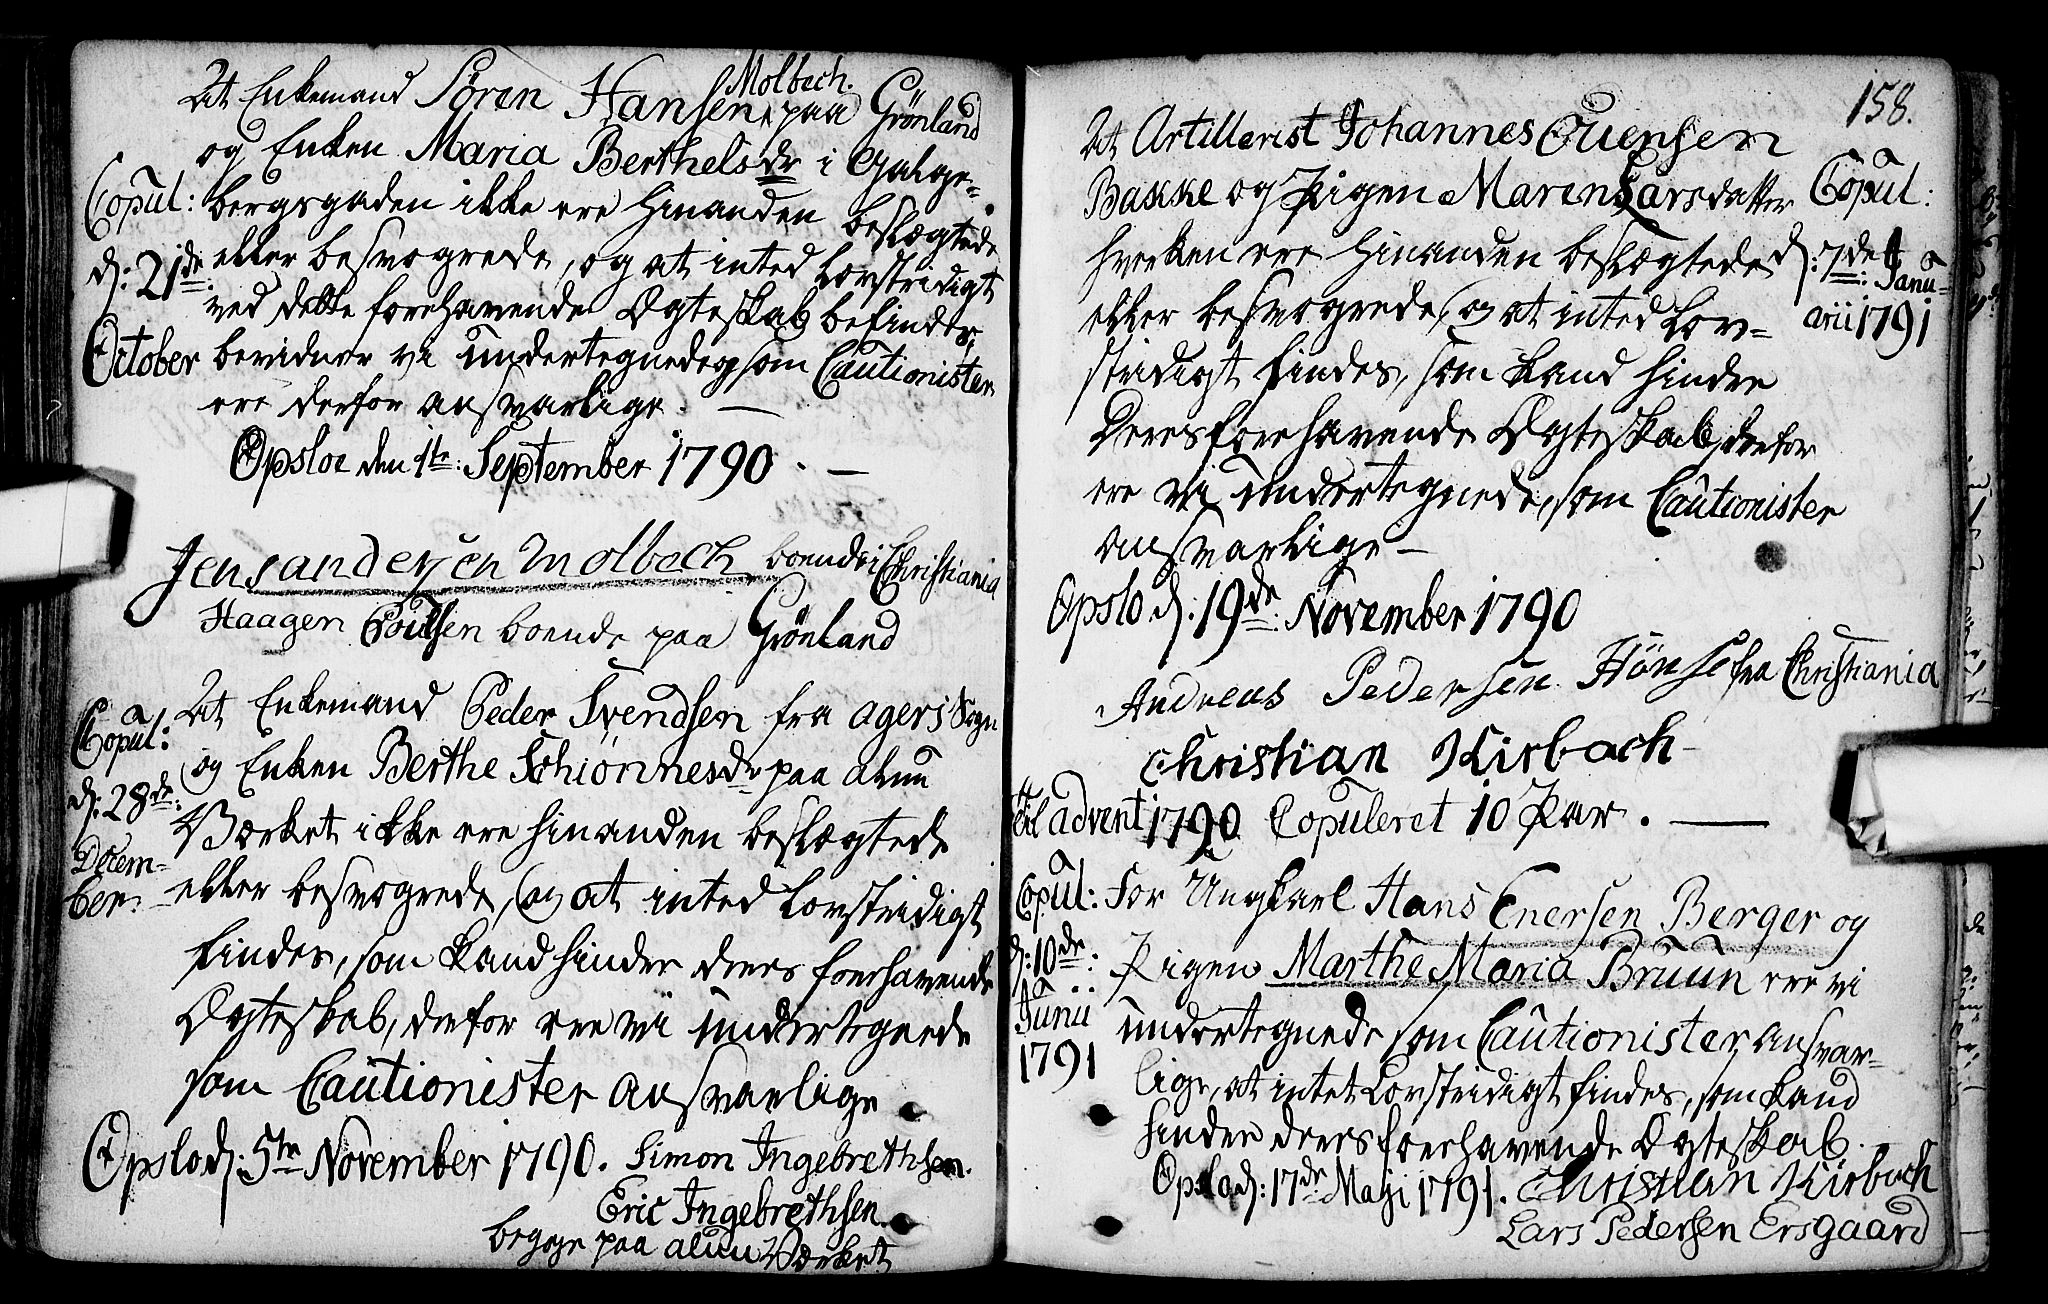 At Enkemand Sören Hansen Molbech. paa Grönland
og Enken Maria Berthelsdr i Galge-
bergsgaden ikke ere hinanden beslægtede
eller besvogrede, og at inted Lovstridigt
ved dette forehavende Ægteskab befindes,
bevidner vi undertegnede, som Cautionister
ere derfor ansvarlige. —
Copul:
d: 21de
October
Opsloe den 1te: September 1790. —
Jens andersen Molbech boendes i Christiania
Haagen Poulsen boende paa Grönland
At Enkemand Peder Svendsen fra agers Sogn
og Enken Berthe Schiönnesdr paa alun
Værket ikke ere hinanden beslægtede
eller besvogrede, og at inted Lovstridigt
findes, som kand hindre deres forehavende
Ægteskab, derfor ere vi undertegnede
som Cautionister ansvarlige
Copul:
d: 28de:
Decem-
ber.
Opslo d: 5te November 1790. Simon Ingebrethsen.
Eric Ingebrethsen
begge paa alun Værket
158.
At Artillerist Johannes Evensen
Bakke og Pigen Maren Larsdatter
hverken ere hinanden beslægtede
eller besvogrede, og at inted Lov-
stridigt findes, som kand hindre
Deres forehavende Ægteskab, derfor
ere vi undertegnede, som Cautionister
ansvarlige —
Copul:
d: 7de
Janu-
arii 1791
Opslo d: 19de: November 1790
Andreas Pedersen Hönse fra Christiania
Christian Kirbach
Til advent 1790 Copuleret 10 Par. —
For Ungkarl Hans Enersen Berger og
Pigen Marthe Maria Bruun ere vi
undertegnede som Cautionister ansvar-
lige, at intet Lovstridigt findes, som kand
hindre deres forehavende Ægteskab.
Copul:
d: 10de:
Junii
1791
Opslo d: 17de Maji 1791. Christian Kirbach
Lars Pedersen Ersgaard